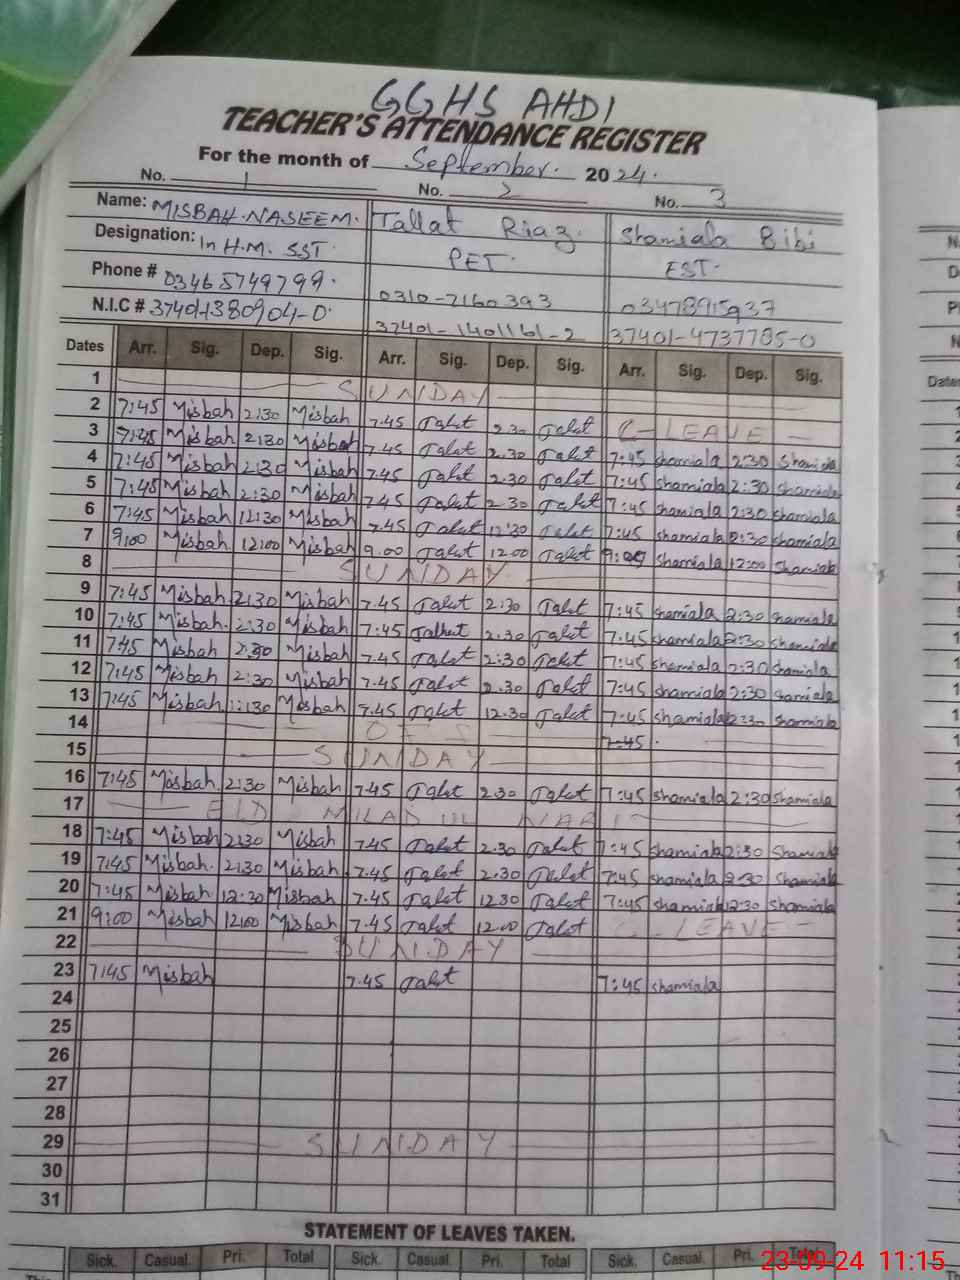 GGHS AHDI
TEACHER'S ATTENDANCE REGISTER
For the month of September. 2024.
No. 1 No. 2 No. 3
Name: MISBAH NASEEM. Tallat Riaz Shamiala Bibi
Designation: In H.M. SST. PET. EST.
Phone # 03465749799. 0310-7160393 03478915937
N.I.C # 37401-1380904-0. 37401-1401161-2 37401-4737785-0
Dates Arr. Sig. Dep. Sig. Arr. Sig. Dep. Sig. Arr. Sig. Dep. Sig.
1 SUNDAY
2 7:45 Misbah 2:30 Misbah 7.45 Talat 2.30 Talat C-LEAVE
3 7:45 Misbah 2:30 Misbah 7.45 Talat 2.30 Talat 7:45 Shamiala 2:30 Shamiala
4 7:45 Misbah 2:30 Misbah 7.45 Talat 2.30 Talat 7:45 Shamiala 2:30 Shamiala
5 7:45 Misbah 2:30 Misbah 7.45 Talat 2.30 Talat 7:45 Shamiala 2:30 Shamiala
6 7:45 Misbah 12:30 Misbah 7.45 Talat 12.30 Talat 7:45 Shamiala Shamiala
7 9:00 Misbah 12:00 Misbah 9.00 Talat 12.00 Talat 9:00 Shamiala 12:00 Shamiala
8 SUNDAY
9 7:45 Misbah 2:30 Misbah 7.45 Talat 2:30 Talat 7:45 Shamiala 2:30 Shamiala
10 7:45 Misbah. 2:30 Misbah 7:45 Talhat 2.30 Talat 7:45 Shamiala 2:30 Shamiala
11 7:45 Misbah 2:30 Misbah 7.45 Talat 2:30 Talat 7:45 Shamiala 2:30 Shamiala
12 7:45 Misbah 2:30 Misbah 7.45 Talat 2.30 Talat 7:45 Shamiala 2:30 Shamiala
13 7:45 Misbah Misbah 7.45 Talat 12.30 Talat 7:45 Shamiala Shamiala
14 7:45
15 SUNDAY
16 7:45 Misbah 2:30 Misbah 7.45 Talat 2.30 Talat 7:45 Shamiala 2:30 Shamiala
17 EID MILAD UL NABI
18 7:45 Misbah 2:30 Misbah 7.45 Talat 2.30 Talat 7:45 Shamiala 2:30 Shamiala
19 7:45 Misbah. 2:30 Misbah 7.45 Talat 2.30 Talat 7:45 Shamiala 2:30 Shamiala
20 7:45 Misbah 12:30 Misbah 7.45 Talat 1230 Talat 7:45 Shamiala 12:30 Shamiala
21 9:00 Misbah 12:00 Misbah 7.45 Talat 12.00 Talat C-LEAVE
22 SUNDAY
23 7:45 Misbah 7.45 Talat 7:45 Shamiala
24
25
26
27
28
29 SUNDAY
30
31
STATEMENT OF LEAVES TAKEN.
Sick. Casual. Pri. Total Sick. Casual. Pri. Total Sick. Casual. Pri. Total
23-09-24 11:15